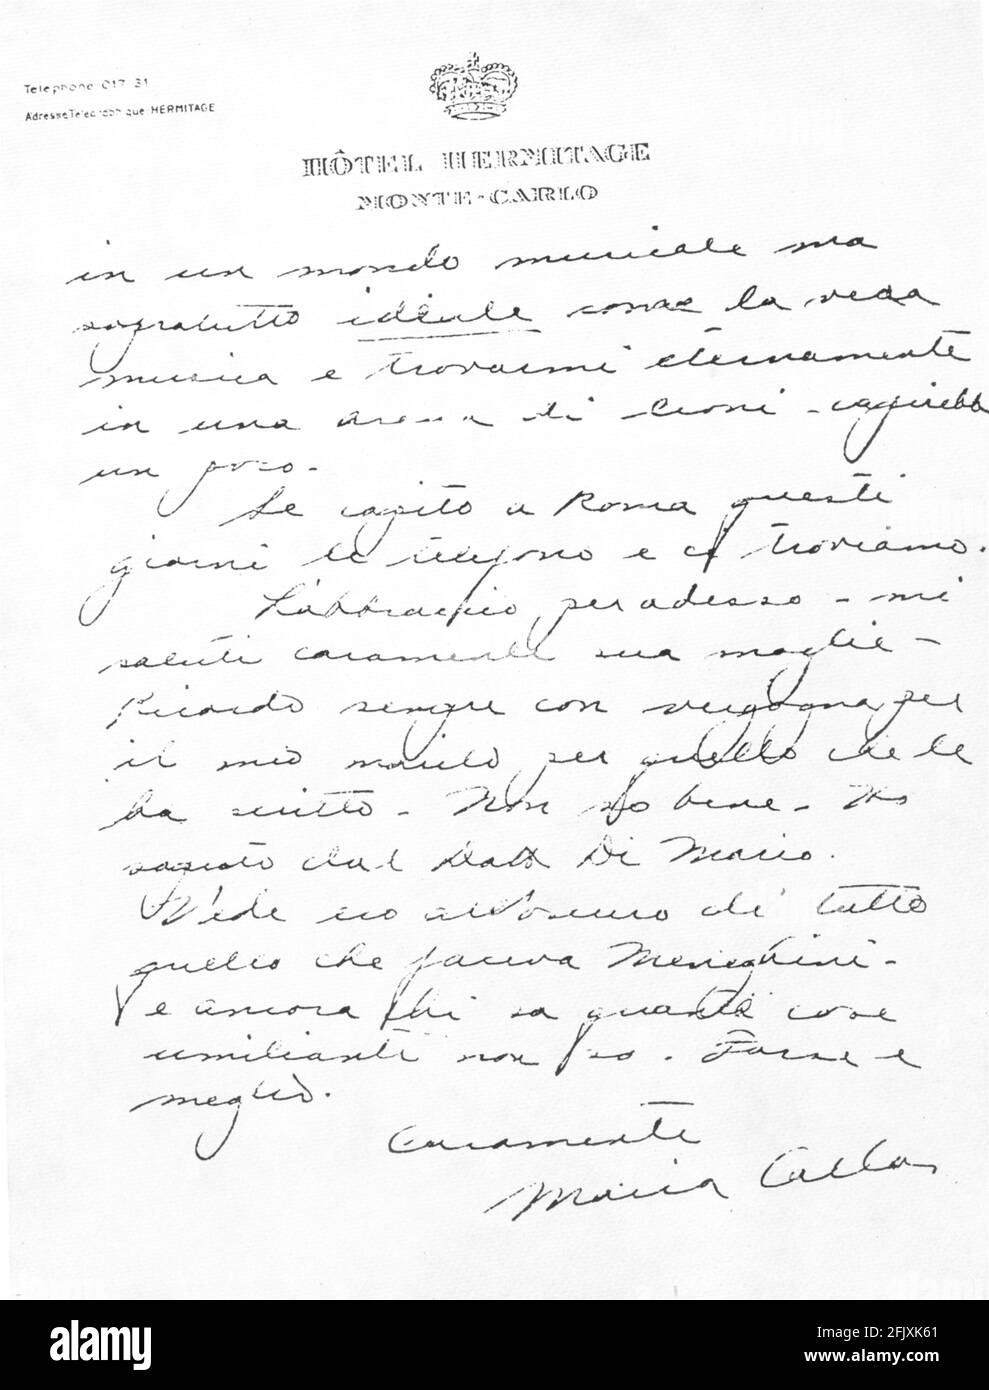 Telephone 017-31
Adresse Telegraphique HERMITAGE
HÔTEL HERMITAGE
MONTE-CARLO
in un mondo musicale ma
sopratutto ideale come la vera
musica e trovarmi eternamente
in una arena di leoni - capirebbe
un poco -
Se capito a Roma questi
giorni le telefono e ci troviamo.
L'abbraccio per adesso - mi
saluti caramente sua moglie -
Ricordo sempre con vergogna per
il mio marito per quello che le
ha scritto - Non so bene - Ho
saputo dal Dott Di Mario.
Vede ero all'oscuro di tutto
quello che faceva Meneghini -
e ancora chi sa quante cose
umilianti non so. Forse e
meglio.
Caramente
Maria Callas
alamy
Image ID: 2FJXK61
www.alamy.com